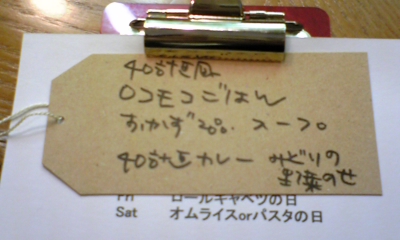 40計画風
ロコモコごはん
おかず2品。スープ。
40計画カレー みどりの
野菜のせ
Fri ロールキャベツの日
Sat オムライスorパスタの日